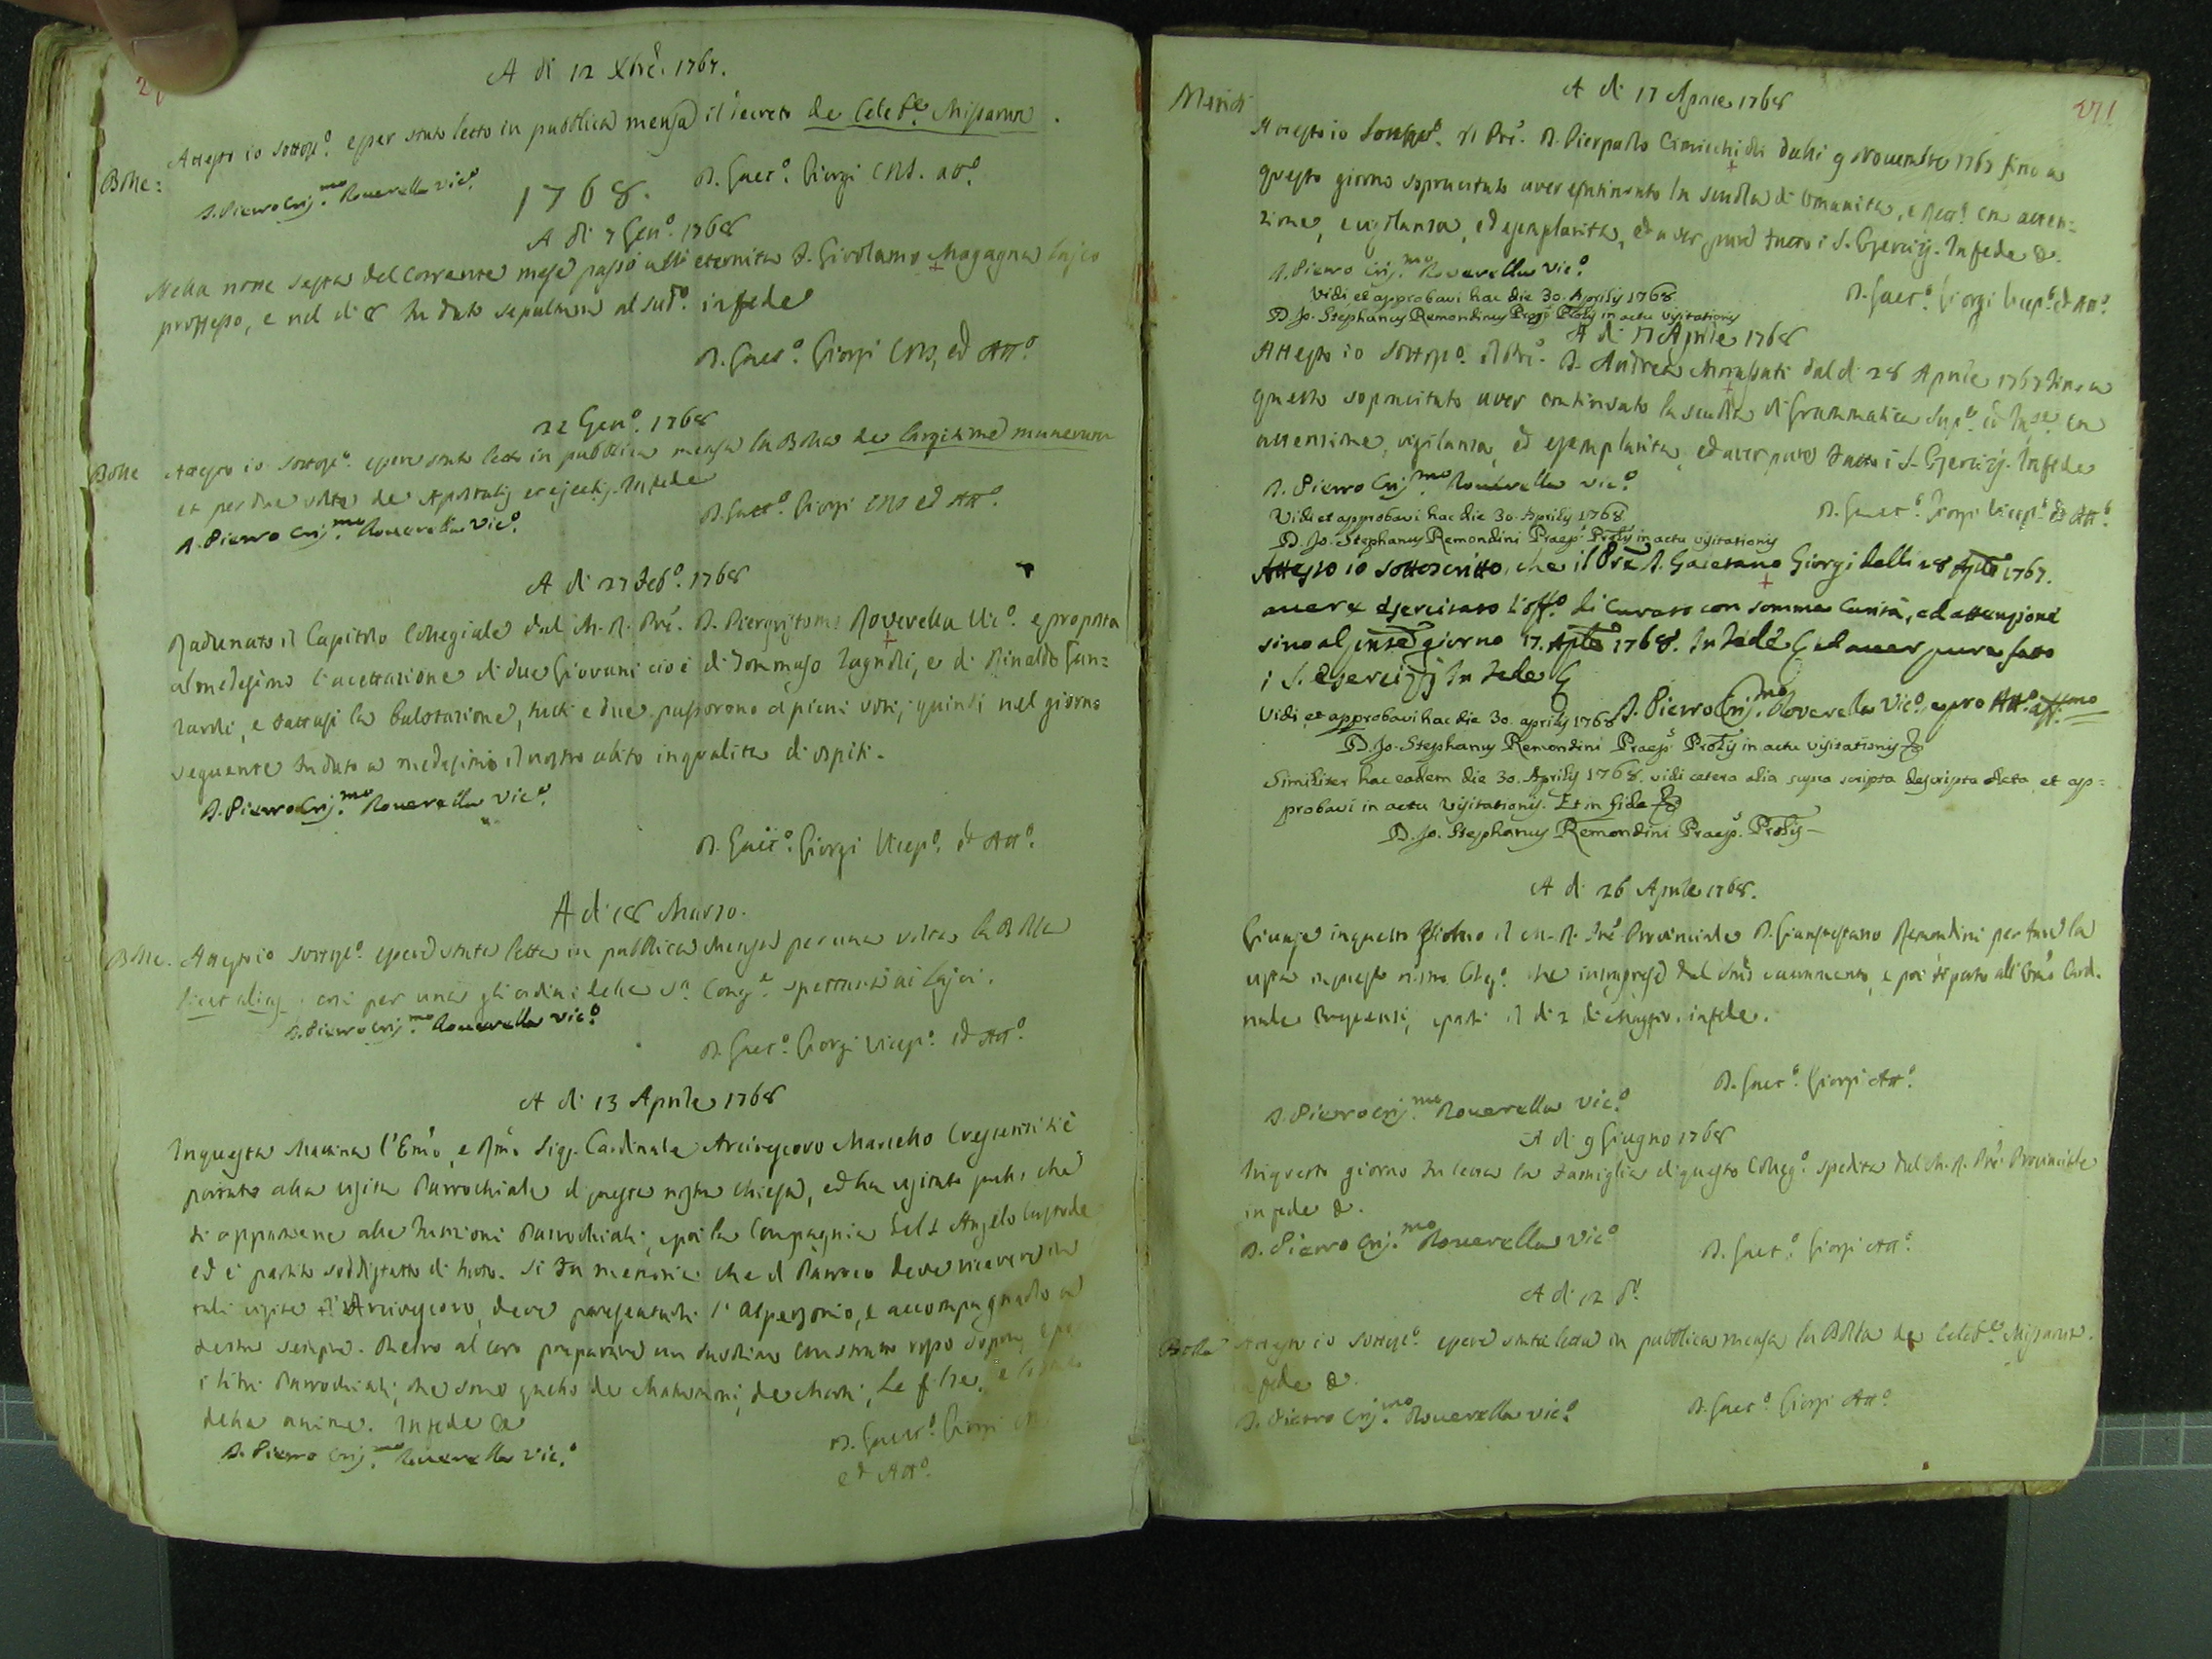 A di 12 Xbre. 1767.
Bolle: Attesto io sottosto. esser stato letto in pubblica mensa il decreto de Celebne. Missarum.
D. Pietro Crismo. Roverella Vico.
D. Gaeto. Giorgi Atto.
1768.
A di 7 Geno. 1768
Nella notte sesta del corrente mese passò all' eternità D. Girolamo Magagna laico
professo, e nel di 8 fu dato sepoltura al sudo. in fede
D. Gaeto. Giorgi ed Atto.
22 Geno. 1768
Bolle Attesto io sottosto. essere stata letta in pubblica mensa la Bolla de largitione munerum
et per due volte de Apostatis et ejectis. In fede
D. Pietro Crismo. Roverella Vico.
D. Gaeto. Giorgi ed Atto.
A di 27 Febo. 1768
Radunato il Capitolo Collegiale dal M. R. Pre. D. Piergristomo Roverella Vico. e proposta
al medesimo l'accettazione di due Giovani cioè di Tommaso Zagnoli, e di Rinaldo
e fattasi la balotazione, tutti e due passorono a pieni voti, quindi nel giorno
seguente fu dato a medesimi il nostro abito in qualità di ospiti.
D. Pietro Crismo. Roverella Vico.
D. Gaeto. Giorgi Vicepo. ed Atto.
A di 18 Marzo.
Bolle. Attesto io sottosto. essere stata letta in pubblica Mensa per una volta la Bolla
sicut alias, così per una gli ordini della Sa. Conge. spettanti ai laici.
D. Pietro Crismo. Roverella Vico.
D. Gaeto. Giorgi Vicepo. ed Atto.
A di 13 Aprile 1768
In questa Mattina l'Emo, e Rmo Sigr. Cardinale Arcivescovo Marcello Crescenzi si è
portato alla visita Parrochiale di questa nostra Chiesa, ed ha visitato che
si appartiene alle funzioni Parrochiali, e poi la Compagnia dell' Angelo Custode
ed è partito soddisfatto di tutto. Si fa memoria che il Parroco deve ricevere in
tale visita l'Arcivescovo, deve presentarli l'Aspersorio, e accompagnarlo a
destra sempre. Dietro al coro preparare un tavolino con strato rosso sopra, e
i libri Parrochiali, che sono quello de Matrimoni, de Morti, le
delle anime. In fede &
D. Pietro Crismo. Roverella Vico.
D. Gaeto. Giorgi
ed Atto.
271
A di 17 Aprile 1768
Attesto io sottosto. il Pre. D. Pierpaolo Cimicchi dalli 9 Novembre 1767 fino a
questo giorno sopracitato aver continuato la scuola di Umanità, e Reto. con atten=
zione, e vigilanza, ed esemplarità, ed aver pure fatto i S. Esercizj. In fede &.
D. Pietro Crismo. Roverella Vico.
Vidi et approbavi hac die 30. Aprilis 1768
D. Jo. Stephanus Remondinus in actu visitationis
D. Gaeto. Giorgi Vicepo. ed Atto.
A di 17 Aprile 1768
Attesto io sottosto. il Pre. D. Andrea dal di 28 Aprile 1767 fino a
questo sopracitato aver continuato la scuola di Grammatica con
attenzione, vigilanza, ed esemplarità, ed aver pure fatto i S. Esercizj. In fede
D. Pietro Crismo. Roverella Vico.
Vidi et approbavi hac die 30. Aprilis 1768
D. Jo. Stephanus Remondini Praeps. Prolis in actu visitationis
D. Gaeto. Giorgi Vicepo. ed Atto.
Attesto io sottoscritto, che il Pre D. Gaietano Giorgi dalli 28 Aple 1767.
avere esercitato l'offo. di Curato con somma carità, ed attenzione
sino al giorno 17. Aple 1768. In fede & ed aver pure fatto
i S. Esercizj In fede &
Vidi et approbavi hac die 30. aprilis 1768
D. Pietro Crismo. Roverella Vico. e pro Atto. affmo
D. Jo. Stephanus Remondini Praeps. Prolis in actu visitationis &
Similiter hac eadem die 30. Aprilis 1768. vidi cetera alia supra scripta descripta acta, et ap=
probavi in actu visitationis. Et in fide &
D. Jo. Stephanus Remondini Praeps. Prolis
A di 26 Aprile 1768.
Giunse in questo giorno il M. R. Pre Provinciale D. Gianstefano Remondini per fare la
visita in questo nostro Collego. e poi si portò all' Emo Card.
nale Crescenzi, e partì il di 2 di Maggio. in fede.
D. Gaeto. Giorgi Atto.
D. Pietro Crismo. Roverella Vico.
A di 9 Giugno 1768
In questo giorno fu letta la famiglia di questo Collego. spedita dal M. R. Pre Provinciale
in fede &.
D. Pietro Crismo. Roverella Vico
D. Gaeto. Giorgi Atto.
A di 12 do.
Bolla Attesto io sottosto. essere stata letta in pubblica mensa la Bolla de Celebne Missarum.
in fede &.
D. Pietro Crismo. Roverella Vico.
D. Gaeto. Giorgi Atto.